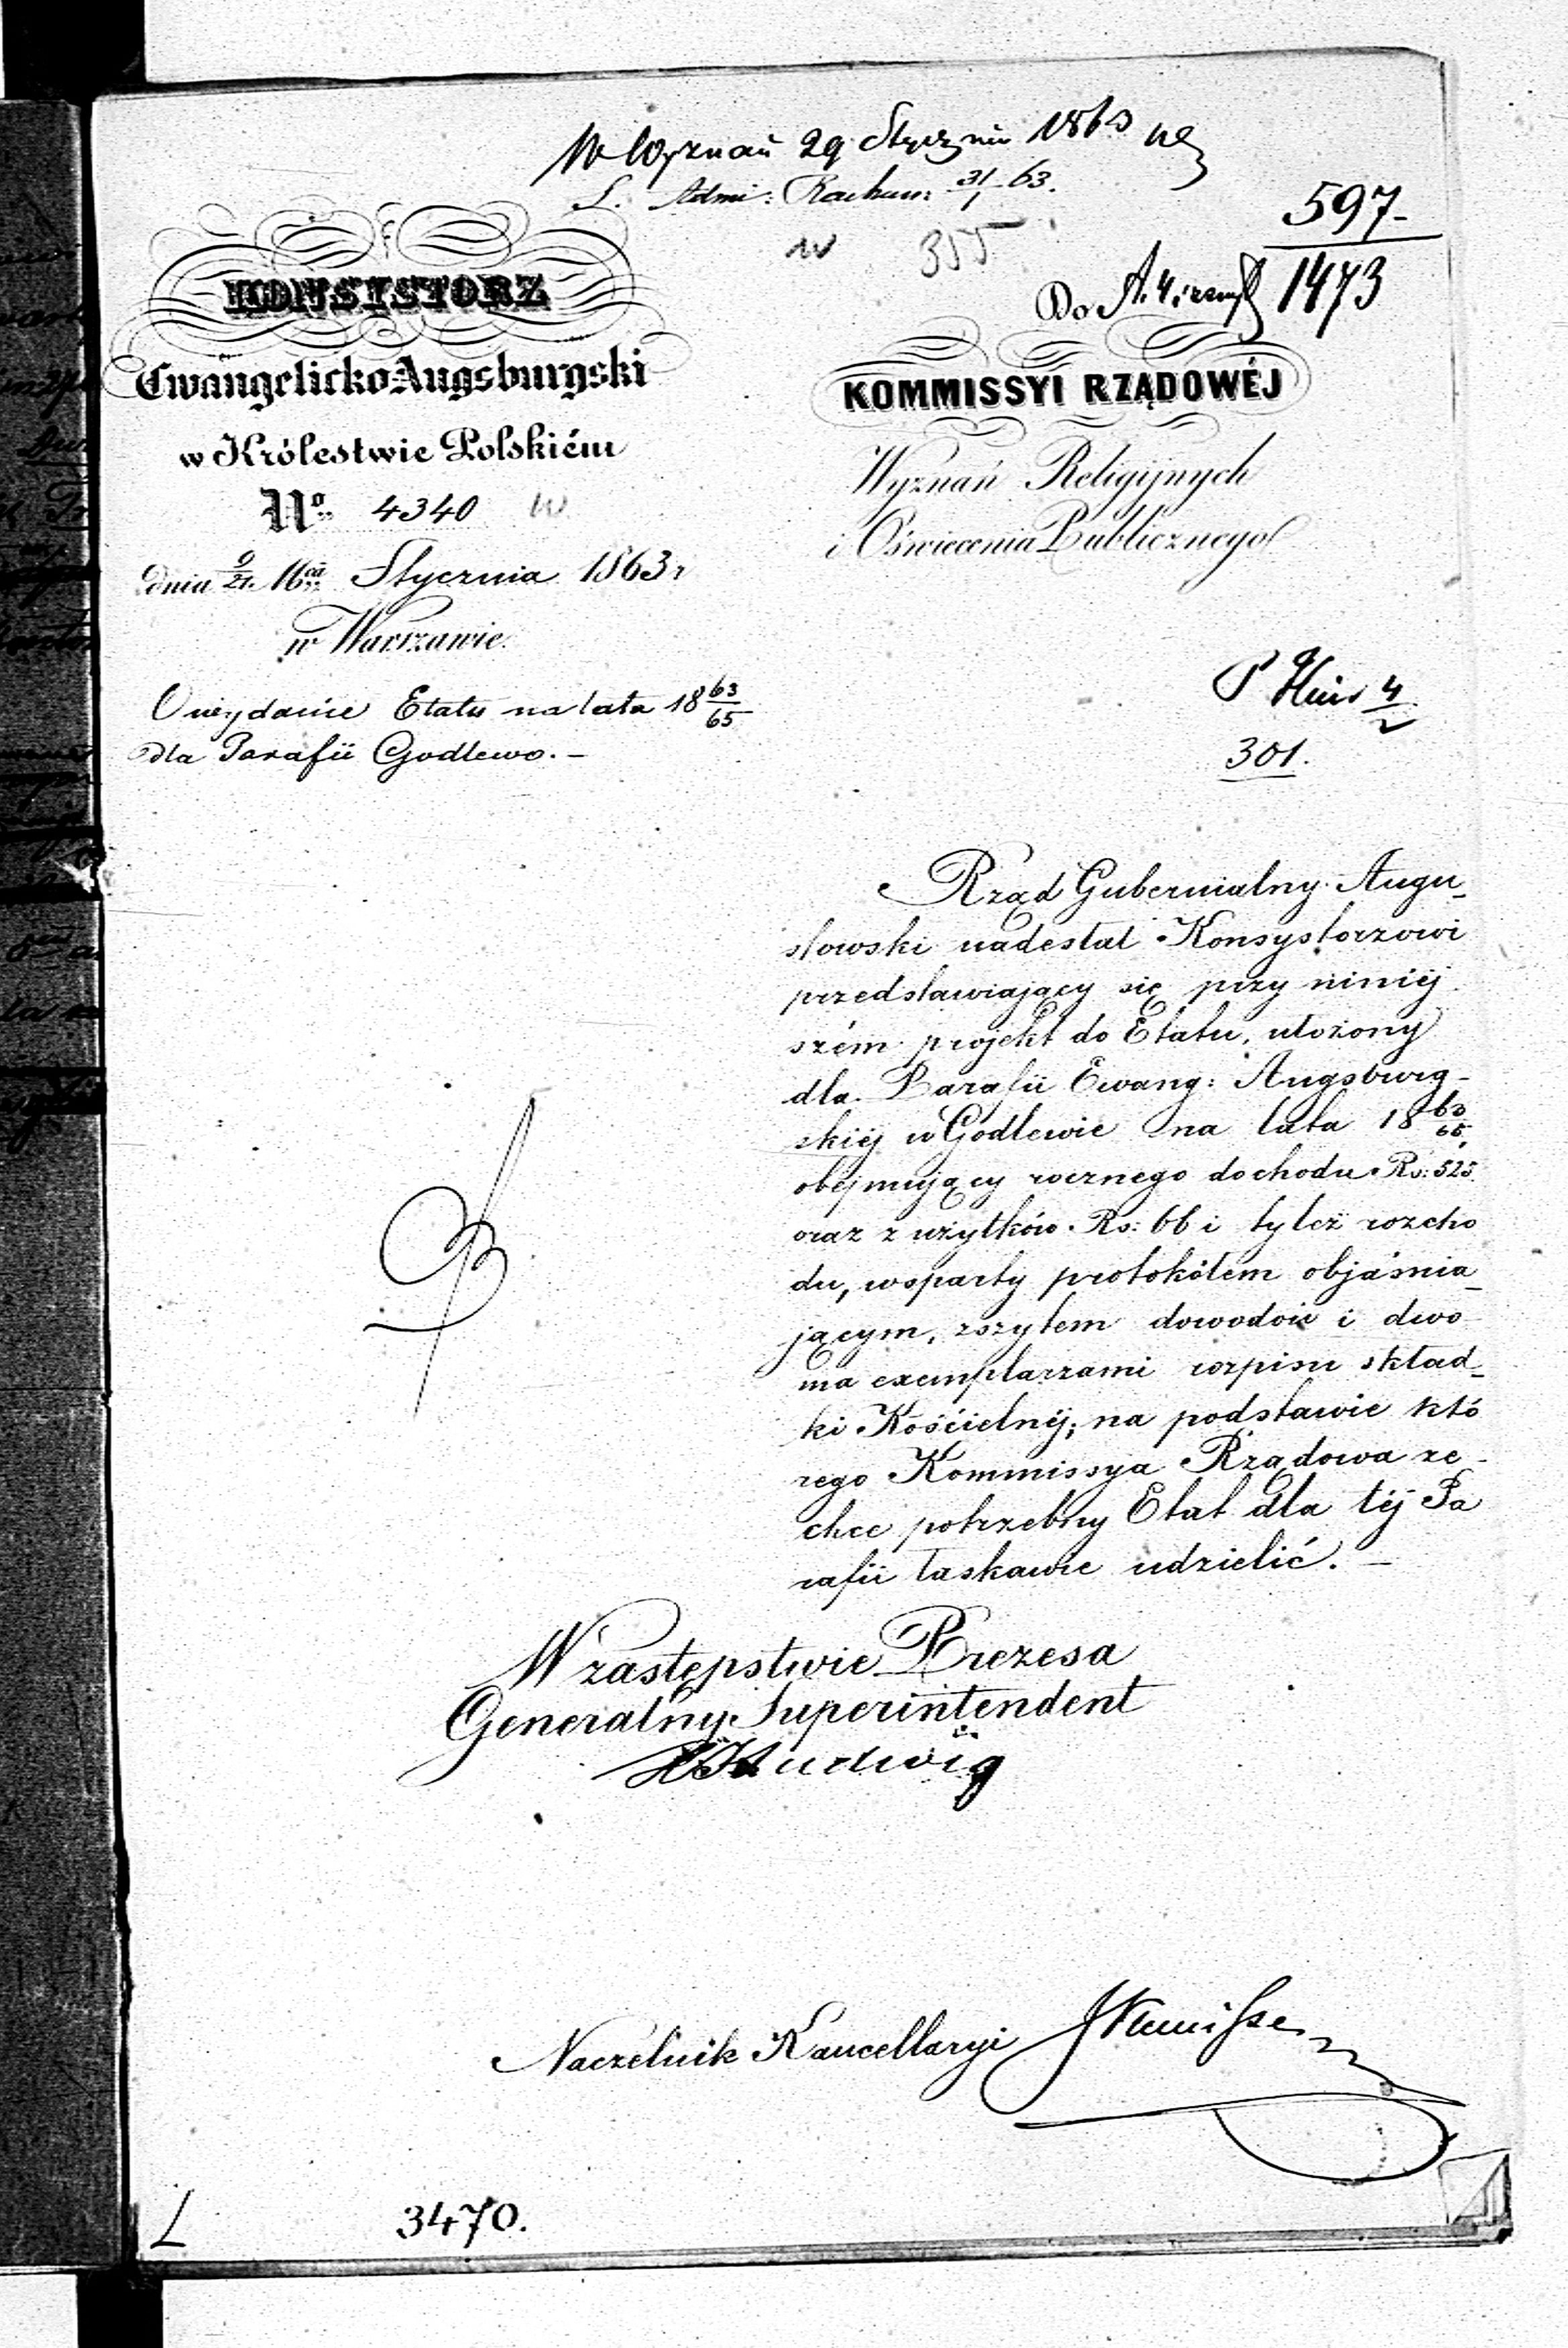 W Wyznań 29 Stycznia 1863
S. Admi: Rachun: 31/1 63.
w 355
597
1473
Do
KONSYSTORZ
Ewangelicko-Augsburgski
w Królestwie Polskiém
No 4340 w
dnia 9/21 Mca Stycznia 1863 r
w Warszawie.
O wydanie Etatu na lata 18 63/65
dla Parafii Godlewo. –
KOMMISSYI RZĄDOWÉJ
Wyznań Religijnych
i Oświecenia Publicznego
P 4/2
301.
Rząd Gubernialny Augu_
stowski nadesłał Konsystorzowi
przedstawiający się przy niniéj
szém projekt do Etatu, ułożony
dla Parafii Ewang: Augsburg-
skiéj w Godlewie na lata 18 63/65
obejmujący rocznego dochodu Rs: 525
oraz z użytków Rs: 66 i tyleż rozcho
du, wsparty protokółem objaśnia_
jącym, zszytem dowodów i dwo
ma exemplarzami rozpisu skład_
ki Kościelnéj; na podstawie któ
rego Kommissya Rządowa ze-
chce potrzebny Etat dla téj Pa
rafii łaskawie udzielić. –
W zastępstwie Prezesa
Generalny Superintendent
Ludwig
Naczelnik Kancellaryi
L 3470.